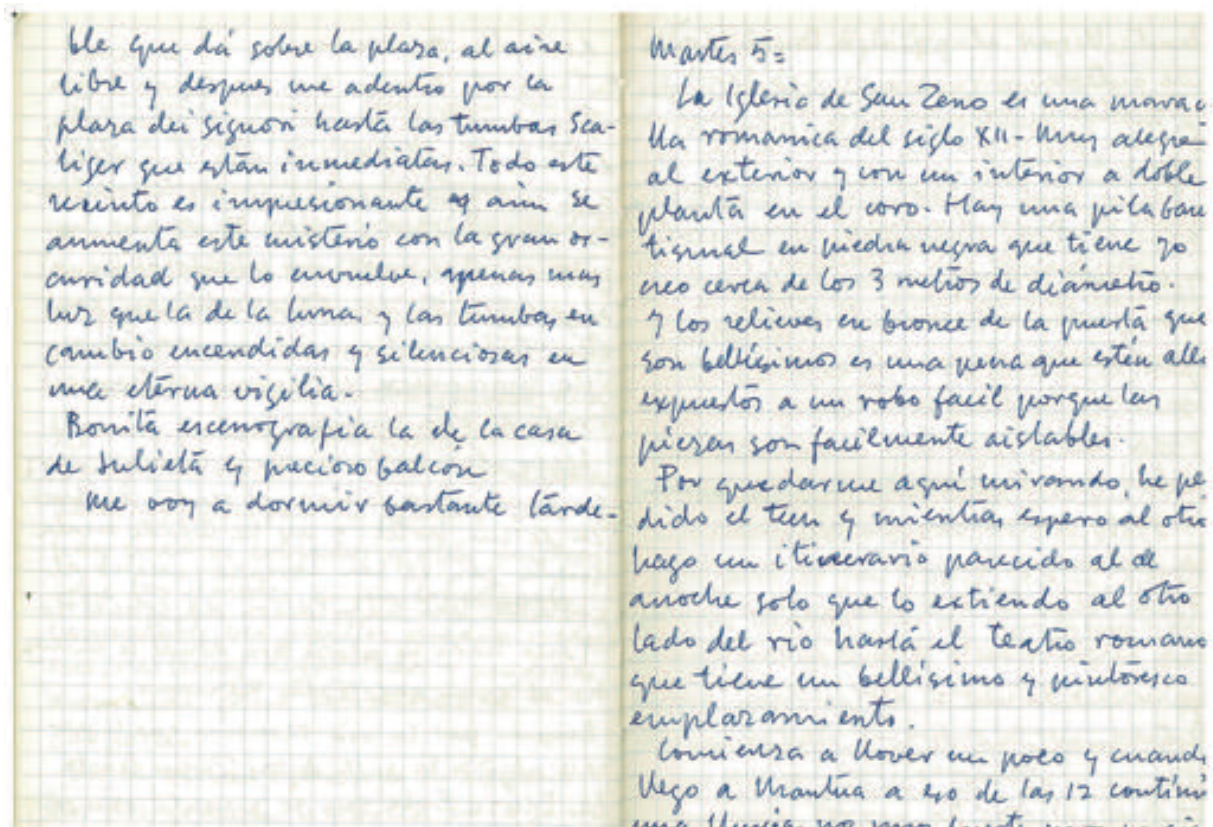 ble que dá sobre la plaza, al aire
libre y despues me adentro por la
plaza dei Signori hasta las tumbas Sca-
liger que están inmediatas. Todo este
recinto es impresionante y aún se
aumenta este misterio con la gran os-
curidad que lo envuelve, apenas mas
luz que la de la luna, y las tumbas en
cambio encendidas y silenciosas en
una eterna vigilia.
Bonita escenografia la de la casa
de Julieta y precioso balcón
me voy a dormir bastante tarde-
Martes 5=
La Iglesia de San Zeno es una marav
lla romanica del siglo XII- Muy alegre
al exterior y con un interior a doble
planta en el coro. Hay una pila bau
tismal en piedra negra que tiene yo
creo cerca de los 3 metros de diámetro.
y los relieves en bronce de la puerta que
son bellísimos es una pena que estén alli
expuestos a un robo facil porque las
piezas son facilmente aislables.
Por quedarme aquí mirando, he pe
dido el tren y mientras espero al otro
hago un itinerario parecido al de
anoche solo que lo extiendo al otro
lado del rio hasta el teatro romano
que tiene un bellisimo y pintoresco
emplazamiento.
Comienza a llover un poco y cuando
llego a Mantua a eso de las 12 continú
una lluvia no muy fuerte